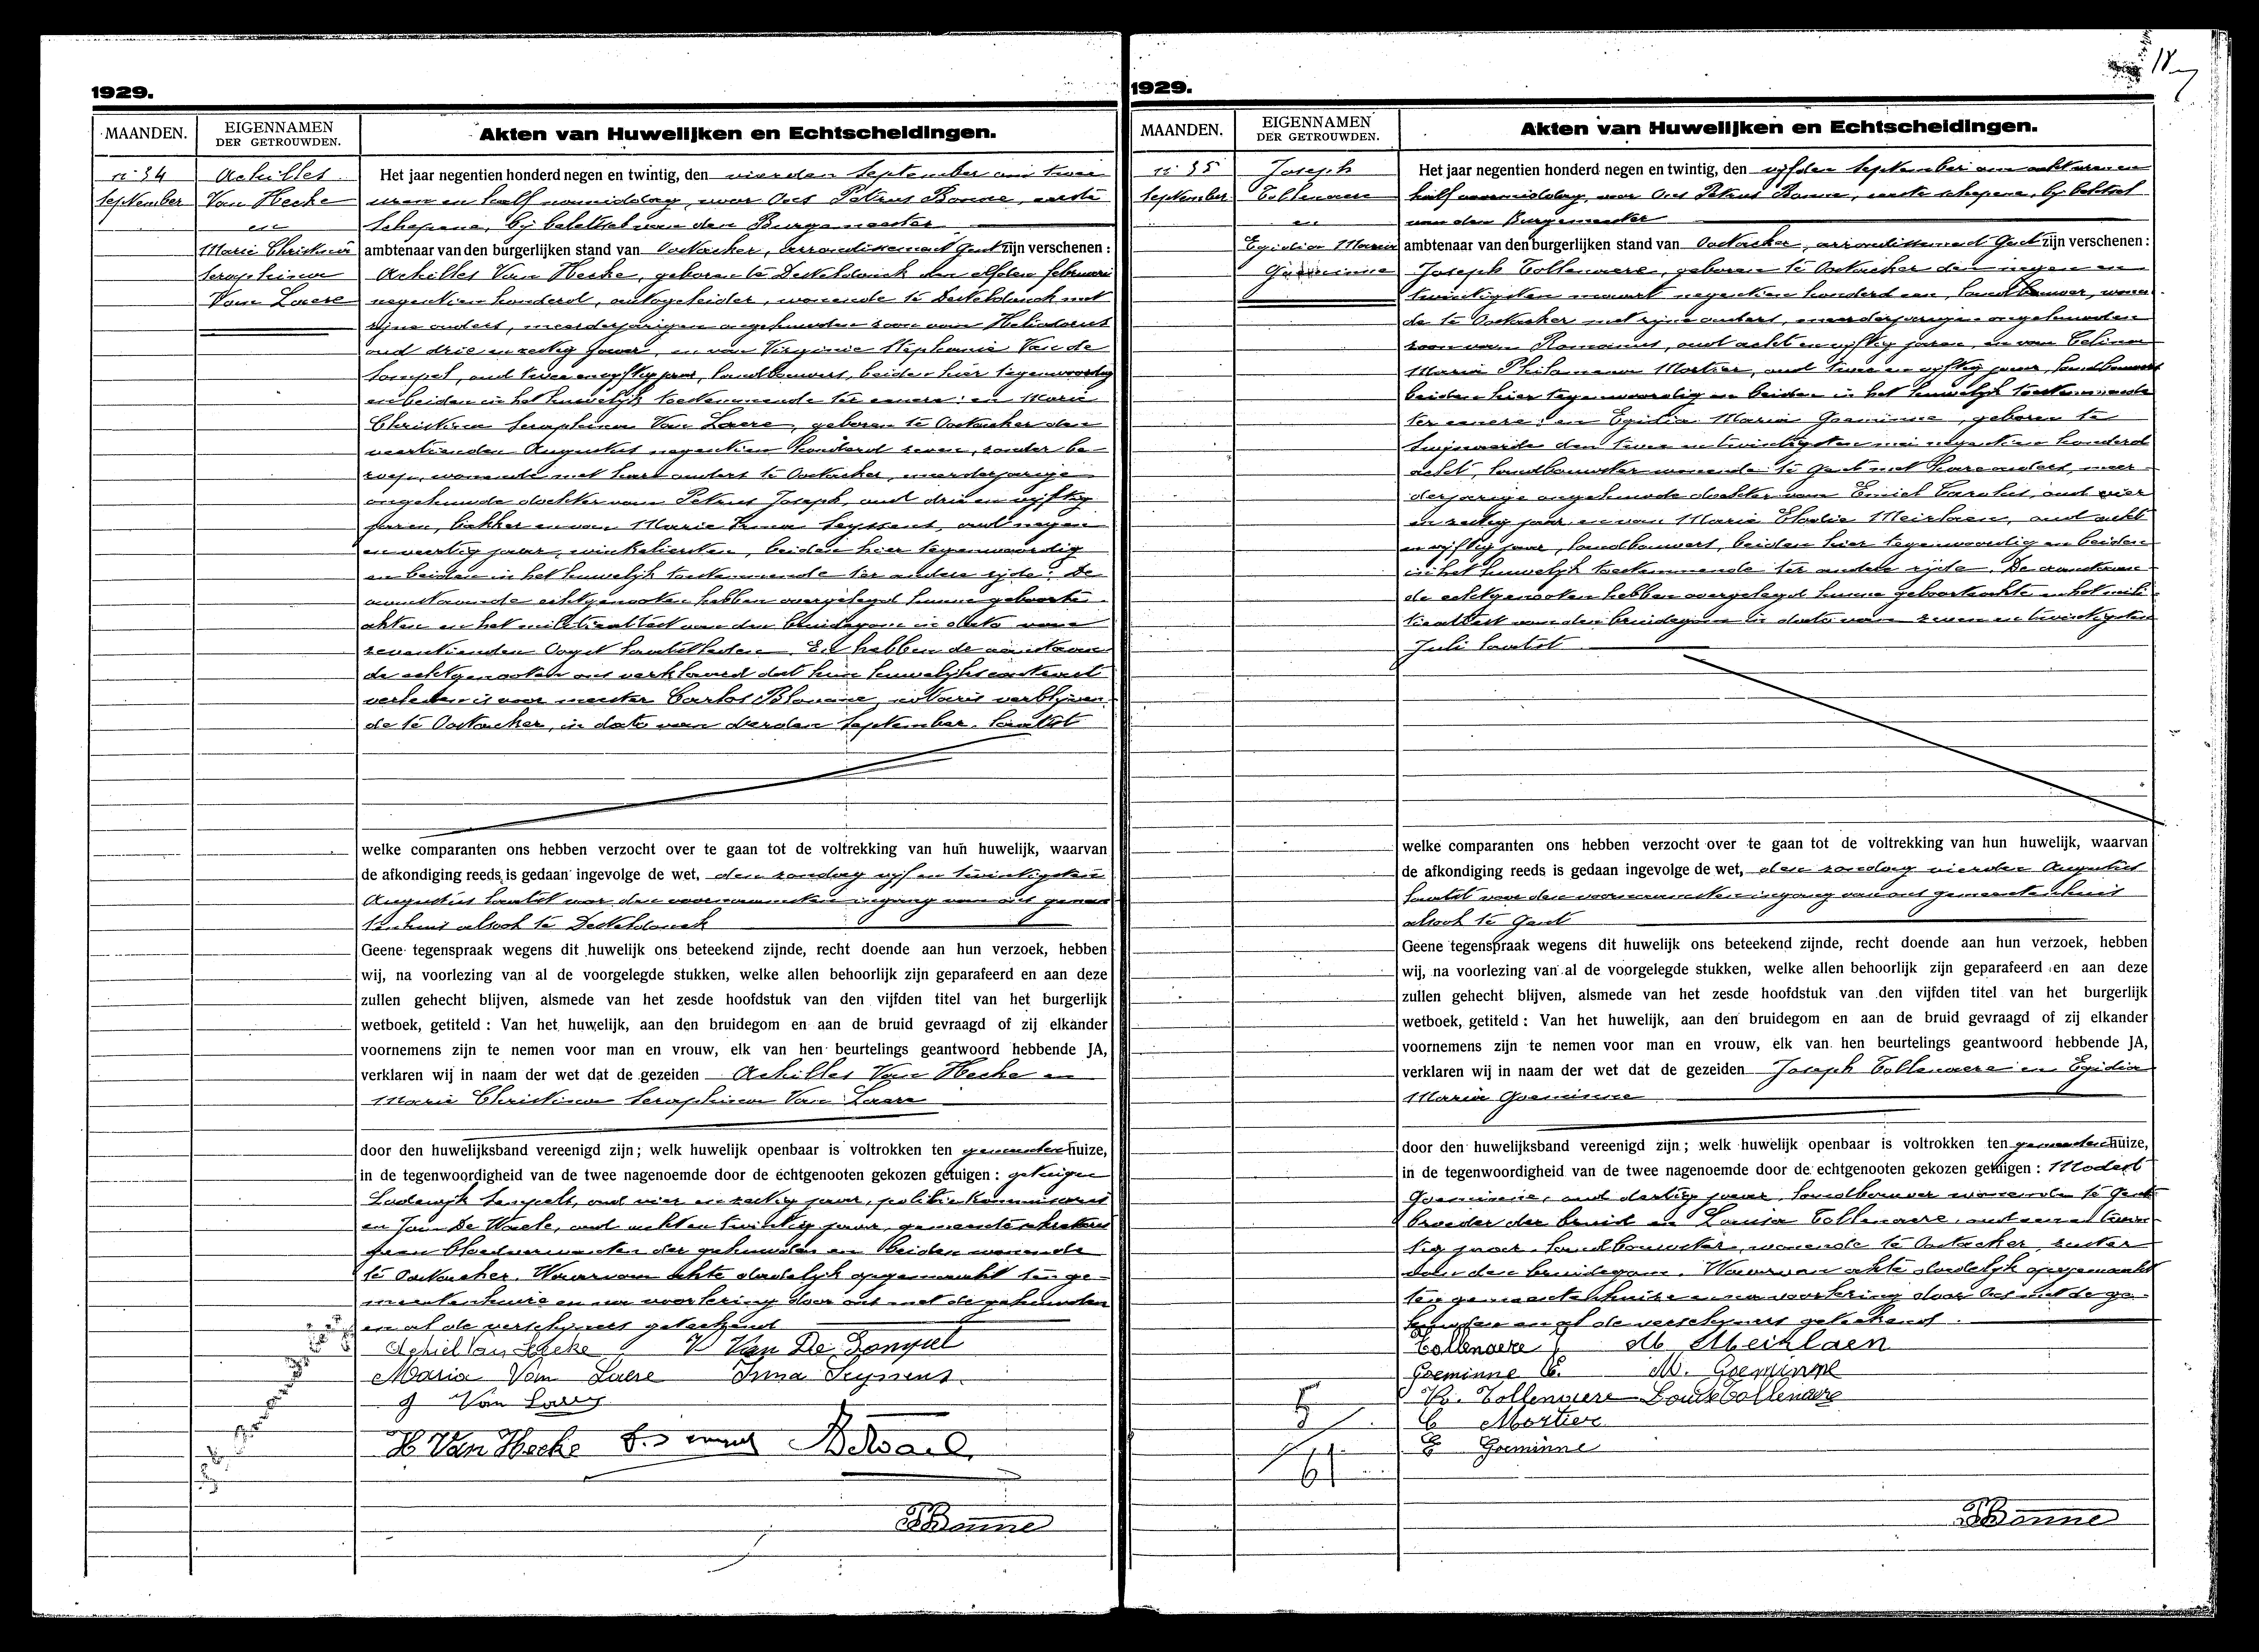 18
1929.
MAANDEN.
EIGENNAMEN
DER GETROUWDEN.
Akten van Huwelijken en Echtscheidingen.
n° 34
September
Achilles
Van Hecke
en
Marie Christina
Seraphina
Van Laere
Het jaar negentien honderd negen en twintig, den vierden September om twee
uren en half namiddag, voor Ons Petrus Bonne, eerste
Schepene, bij beletsel van den Burgemeester
ambtenaar van den burgerlijken stand van Oostacker, arrondissement Gent zijn verschenen :
Achilles Van Hecke, geboren te Desteldonck den elfden februari
negentien honderd, autogeleider, wonende te Desteldonck met
zijne ouders, meerderjarigen ongehuwden zoon van Heliodorus
oud drie en zestig jaar, en van Virginie Stephanie Van de
Sompel, oud twee en vijftig jaar, landbouwers, beiden hier tegenwoordig
en beiden in het huwelijk toestemmende ter eenere : en Marie
Christina Seraphina Van Laere, geboren te Oostacker den
veertienden Augustus negentien honderd zeven, zonder be-
roep, wonende met hare ouders te Oostacker, meerderjarige
ongehuwde dochter van Petrus Joseph, oud drie en vijftig
jaren, bakker en van Marie Irma Seyssens, oud negen
en veertig jaar, winkeliersten, beiden hier tegenwoordig
en beiden in het huwelijk toestemmende ter andere zijde. De
aanstaande echtgenooten hebben overgelegd hunne geboorte
akten en het militieattest van den bruidegom in dato van
zeventienden Oogst laatstleden. En hebben de aanstaan
de echtgenooten ons verklaard dat hun huwelijkscontract
verleden is voor meester Carlos Blomme, notaris verblijven
de te Oostacker, in dato van derden September laatst
welke comparanten ons hebben verzocht over te gaan tot de voltrekking van hun huwelijk, waarvan
de afkondiging reeds is gedaan ingevolge de wet, den zondag vijf en twintigsten
Augustus laatst voor den voornaamsten ingang van ons gemeen
tenhuis alsook te Desteldonck
Geene tegenspraak wegens dit huwelijk ons beteekend zijnde, recht doende aan hun verzoek, hebben
wij, na voorlezing van al de voorgelegde stukken, welke allen behoorlijk zijn geparafeerd en aan deze
zullen gehecht blijven, alsmede van het zesde hoofdstuk van den vijfden titel van het burgerlijk
wetboek, getiteld : Van het huwelijk, aan den bruidegom en aan de bruid gevraagd of zij elkander
voornemens zijn te nemen voor man en vrouw, elk van hen beurtelings geantwoord hebbende JA,
verklaren wij in naam der wet dat de gezeiden Achilles Van Hecke en
Marie Christina Seraphina Van Laere
door den huwelijksband vereenigd zijn ; welk huwelijk openbaar is voltrokken ten gemeentenhuize,
in de tegenwoordigheid van de twee nagenoemde door de echtgenooten gekozen getuigen : getuigen
Lodewijk oud vier en zestig jaar, politiekommissaris
en Jan De Waele, oud acht en twintig jaar, gemeentesekretaris
geen bloedverwanten der gehuwden en beiden wonende
te Oostacker. Waarvan akte dadelijk opgemaakt ten ge-
meentenhuize en na voorlezing door ons met de gehuwden
en al de verschijners geteekend
Achiel Van Hecke V Van De Sompel
Maria Van Laere Irma Seyssens
J Van Laere
H Van Hecke
PBonne
1929.
MAANDEN.
EIGENNAMEN
DER GETROUWDEN.
Akten van Huwelijken en Echtscheidingen.
n° 35
September
Joseph
Tollenaere
en
Egidia Maria
Goeminne
Het jaar negentien honderd negen en twintig, den vijfden September om acht uren en
half voormiddag, voor Ons Petrus Bonne, eerste schepene, bij beletsel
van den Burgemeester
ambtenaar van den burgerlijken stand van Oostacker, arrondissement Gent zijn verschenen :
Joseph Tollenaere, geboren te Oostacker den negen en
twintigsten maart negentien honderd een, landbouwer, wonen
de te Oostacker met zijne ouders, meerderjarigen ongehuwden
zoon van Romanus, oud acht en vijftig jaren, en van Celina
Maria Philomena Mortier, oud twee en vijftig jaar, landbouwers
beiden hier tegenwoordig en beiden in het huwelijk toestemmende
ter eenere : en Egidia Maria Goeminne, geboren te
Swijnaerde den twee en twintigsten mei negentien honderd
acht, landbouwster wonende te Gent met hare ouders, meer-
derjarige ongehuwde dochter van Emiel Carolus, oud vier
en zestig jaar en van Marie Elodie Meirlaen, oud acht
en vijftig jaar, landbouwers, beiden hier tegenwoordig en beiden
in het huwelijk toestemmende ter andere zijde. De aanstaan
de echtgenooten hebben overgelegd hunne geboorteakte en het mili-
tieattest van den bruidegom in dato van zeven en twintigsten
Juli laatst
welke comparanten ons hebben verzocht over te gaan tot de voltrekking van hun huwelijk, waarvan
de afkondiging reeds is gedaan ingevolge de wet, den zondag vierden Augustus
laatst voor den voornaamsten ingang van ons gemeentenhuis
alsook te Gent
Geene tegenspraak wegens dit huwelijk ons beteekend zijnde, recht doende aan hun verzoek, hebben
wij, na voorlezing van al de voorgelegde stukken, welke allen behoorlijk zijn geparafeerd en aan deze
zullen gehecht blijven, alsmede van het zesde hoofdstuk van den vijfden titel van het burgerlijk
wetboek, getiteld : Van het huwelijk, aan den bruidegom en aan de bruid gevraagd of zij elkander
voornemens zijn te nemen voor man en vrouw, elk van hen beurtelings geantwoord hebbende JA,
verklaren wij in naam der wet dat de gezeiden Joseph Tollenaere en Egidia
Maria Goeminne
door den huwelijksband vereenigd zijn ; welk huwelijk openbaar is voltrokken ten gemeentenhuize,
in de tegenwoordigheid van de twee nagenoemde door de echtgenooten gekozen getuigen : Modest
Goeminne, oud dertig jaar, landbouwer wonende te Gent
broeder der bruid en Louisa Tollenaere, oud een en twin
tig jaar landbouwster, wonende te Oostacker, zuster
van den bruidegom. Waarvan akte dadelijk opgemaakt
ten gemeentenhuize en na voorlezing door Ons met de ge-
huwden en al de verschijners geteekend.
Tollenaere J M Meirlaen
Goeminne E. M. Goeminne
R. Tollenaere Louisa Tollenaere
C Mortier
E Goeminne
PBonne